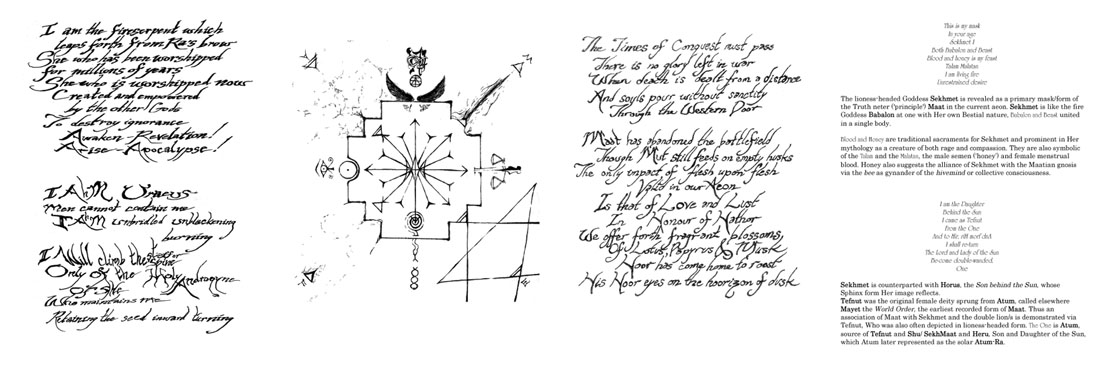 I am the fireserpent which
leaps forth from Ra's brow
She who has been worshipped
for millions of years
She who is worshipped now
Created and empowered
by the other Gods
To destroy ignorance
Awaken Revelation!
Arise Apocalypse!
I AM Uraeus
Men cannot contain me
I AM unbridled unblackening
burning
I Will climb the
Only of the Holy Androgyne
Of She
Who maintains me
Retaining the seed inward turning
The Times of Conquest must pass
There is no glory left in war
When death is dealt from a distance
And souls pour without sanctity
Through the Western Door
Maat has abandoned the battlefield
Though Mut still feeds on empty husks
The only impact of flesh upon flesh
Valid in our Aeon
Is that of Love and Lust
In Honour of Hathor
We offer forth fragrant blossoms,
Of Lotus, Papyrus & Musk
Hoor has come home to roost
His Hoor eyes on the hoorizon of dusk
This is my mask
In your age
Sekhmet I
Both Babalon and Beast
Blood and honey is my feast
Talam Malatam
I am living fire
Unrestrained desire
The lioness-headed Goddess Sekhmet is revealed as a primary mask/form of
the Truth neter ('principle') Maat in the current aeon. Sekhmet is like the fire
Goddess Babalon at one with Her own Bestial nature, Babalon and Beast united
in a single body.
Blood and Honey are traditional sacraments for Sekhmet and prominent in Her
mythology as a creature of both rage and compassion. They are also symbolic
of the Talam and the Malatam, the male semen ('honey') and female menstrual
blood. Honey also suggests the alliance of Sekhmet with the Maatian gnosis
via the bee as gynander of the hivemind or collective consciousness.
I am the Daughter
Behind the Sun
I came as Tefnut
From the One
And to the
I shall return
The Lord and lady of the Sun
Become double-wanded,
One
Sekhmet is counterparted with Horus, the Son behind the Sun, whose
Sphinx form Her image reflects.
Tefnut was the original female deity sprung from Atum, called elsewhere
Mayet the World Order, the earliest recorded form of Maat. Thus an
association of Maat with Sekhmet and the double lion/s is demonstrated via
Tefnut, Who was also often depicted in lioness-headed form. The One is Atum,
source of Tefnut and Shu/ SekhMaat and Heru, Son and Daughter of the Sun,
which Atum later represented as the solar Atum-Ra.